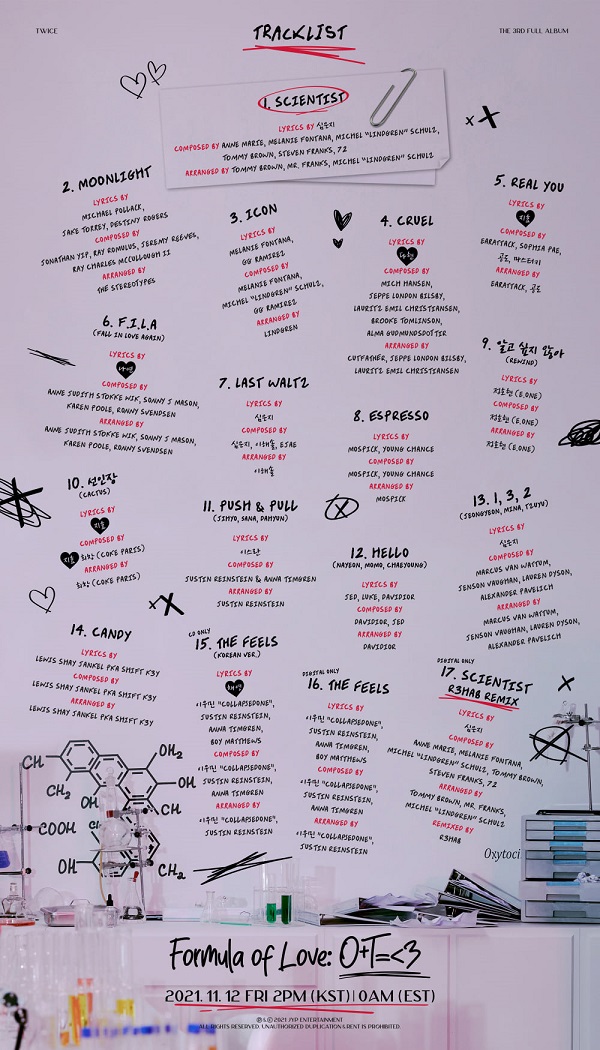 TWICE
TRACKLIST
THE 3RD FULL ALBUM
1. SCIENTIST
LYRICS BY 심은지
COMPOSED BY ANNE MARIE, MELANIE FONTANA, MICHEL "LINDGREN" SCHULZ,
TOMMY BROWN, STEVEN FRANKS, 72
ARRANGED BY TOMMY BROWN, MR. FRANKS, MICHEL "LINDGREN" SCHULZ
2. MOONLIGHT
LYRICS BY
MICHAEL POLLACK,
JAKE TORREY, DESTINY ROGERS
COMPOSED BY
JONATHAN YIP, RAY ROMULUS, JEREMY REEVES,
RAY CHARLES MCCULLOUGH II
ARRANGED BY
THE STEREOTYPES
3. ICON
LYRICS BY
MELANIE FONTANA,
GG RAMIREZ
COMPOSED BY
MELANIE FONTANA,
MICHEL "LINDGREN" SCHULZ,
GG RAMIREZ
ARRANGED BY
LINDGREN
4. CRUEL
LYRICS BY
다현
COMPOSED BY
MICH HANSEN,
JEPPE LONDON BILSBY,
LAURITZ EMIL CHRISTIANSEN,
BROOKE TOMLINSON,
ALMA GUDMUNDSDOTTIR
ARRANGED BY
CUTFATHER, JEPPE LONDON BILSBY,
LAURITZ EMIL CHRISTIANSEN
5. REAL YOU
LYRICS BY
지효
COMPOSED BY
EARATTACK, SOPHIA PAE,
공도, 따스터치
ARRANGED BY
EARATTACK, 공도
6. F.I.L.A
(FALL IN LOVE AGAIN)
LYRICS BY
나연
COMPOSED BY
ANNE JUDITH STOKKE WIK, SONNY J MASON,
KAREN POOLE, RONNY SVENDSEN
ARRANGED BY
ANNE JUDITH STOKKE WIK, SONNY J MASON,
KAREN POOLE, RONNY SVENDSEN
7. LAST WALTZ
LYRICS BY
심은지
COMPOSED BY
심은지, 이해솔, EJAE
ARRANGED BY
이해솔
8. ESPRESSO
LYRICS BY
MOSPICK, YOUNG CHANCE
COMPOSED BY
MOSPICK, YOUNG CHANCE
ARRANGED BY
MOSPICK
9. 알고 싶지 않아
(REWIND)
LYRICS BY
정호현 (E.ONE)
COMPOSED BY
정호현 (E.ONE)
ARRANGED BY
정호현 (E.ONE)
10. 선인장
(CACTUS)
LYRICS BY
지효
COMPOSED BY
지효 최창 (COKE PARIS)
ARRANGED BY
최창 (COKE PARIS)
11. PUSH & PULL
(JIHYO, SANA, DAHYUN)
LYRICS BY
이스란
COMPOSED BY
JUSTIN REINSTEIN & ANNA TIMGREN
ARRANGED BY
JUSTIN REINSTEIN
12. HELLO
(NAYEON, MOMO, CHAEYOUNG)
LYRICS BY
JED, LUKE, DAVIDIOR
COMPOSED BY
DAVIDIOR, JED
ARRANGED BY
DAVIDIOR
13. 1, 3, 2
(JEONGYEON, MINA, TZUYU)
LYRICS BY
심은지
COMPOSED BY
MARCUS VAN WATTUM,
JENSON VAUGHAN, LAUREN DYSON,
ALEXANDER PAVELICH
ARRANGED BY
MARCUS VAN WATTUM,
JENSON VAUGHAN, LAUREN DYSON,
ALEXANDER PAVELICH
14. CANDY
LYRICS BY
LEWIS SHAY JANKEL PKA SHIFT K3Y
COMPOSED BY
LEWIS SHAY JANKEL PKA SHIFT K3Y
ARRANGED BY
LEWIS SHAY JANKEL PKA SHIFT K3Y
CD ONLY
15. THE FEELS
(KOREAN VER.)
LYRICS BY
채영
이우민 "COLLAPSEDONE",
JUSTIN REINSTEIN,
ANNA TIMGREN,
BOY MATTHEWS
COMPOSED BY
이우민 "COLLAPSEDONE",
JUSTIN REINSTEIN,
ANNA TIMGREN
ARRANGED BY
이우민 "COLLAPSEDONE",
JUSTIN REINSTEIN
DIGITAL ONLY
16. THE FEELS
LYRICS BY
이우민 "COLLAPSEDONE",
JUSTIN REINSTEIN,
ANNA TIMGREN,
BOY MATTHEWS
COMPOSED BY
이우민 "COLLAPSEDONE",
JUSTIN REINSTEIN,
ANNA TIMGREN
ARRANGED BY
이우민 "COLLAPSEDONE",
JUSTIN REINSTEIN
DIGITAL ONLY
17. SCIENTIST
R3HAB REMIX
LYRICS BY
심은지
COMPOSED BY
ANNE MARIE, MELANIE FONTANA,
MICHEL "LINDGREN" SCHULZ, TOMMY BROWN,
STEVEN FRANKS, 72
ARRANGED BY
TOMMY BROWN, MR. FRANKS,
MICHEL "LINDGREN" SCHULZ
REMIXED BY
R3HAB
CH
OH2
CH2
OH
OH
CH
COOH
OH
CH2
Oxytoci
Formula of Love: O+T=<3
2021. 11. 12 FRI 2PM (KST) | 0AM (EST)
℗ & © 2021 JYP ENTERTAINMENT
ALL RIGHTS RESERVED. UNAUTHORIZED DUPLICATION & RENT IS PROHIBITED.